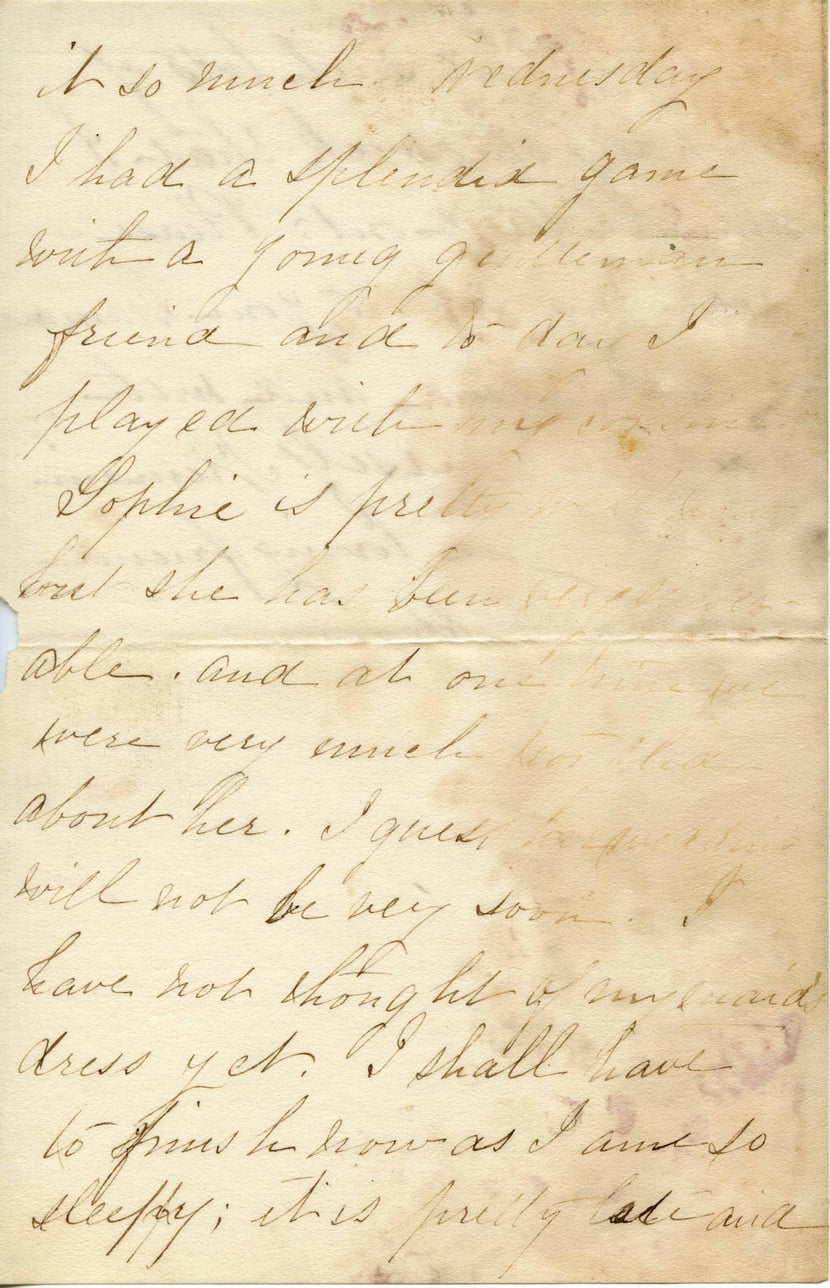 it so much. Wednesday
I had a splendid game
with a young gentleman
friend and to day I
played with my
Sophie is pretty
but she has been very miser-
able. and at one time we
were very much troubled
about her. I guess her wedding
will not be very soon. I
have not thought of my maids
dress yet. I shall have
to finish now as I am so
sleepy; it is pretty late and